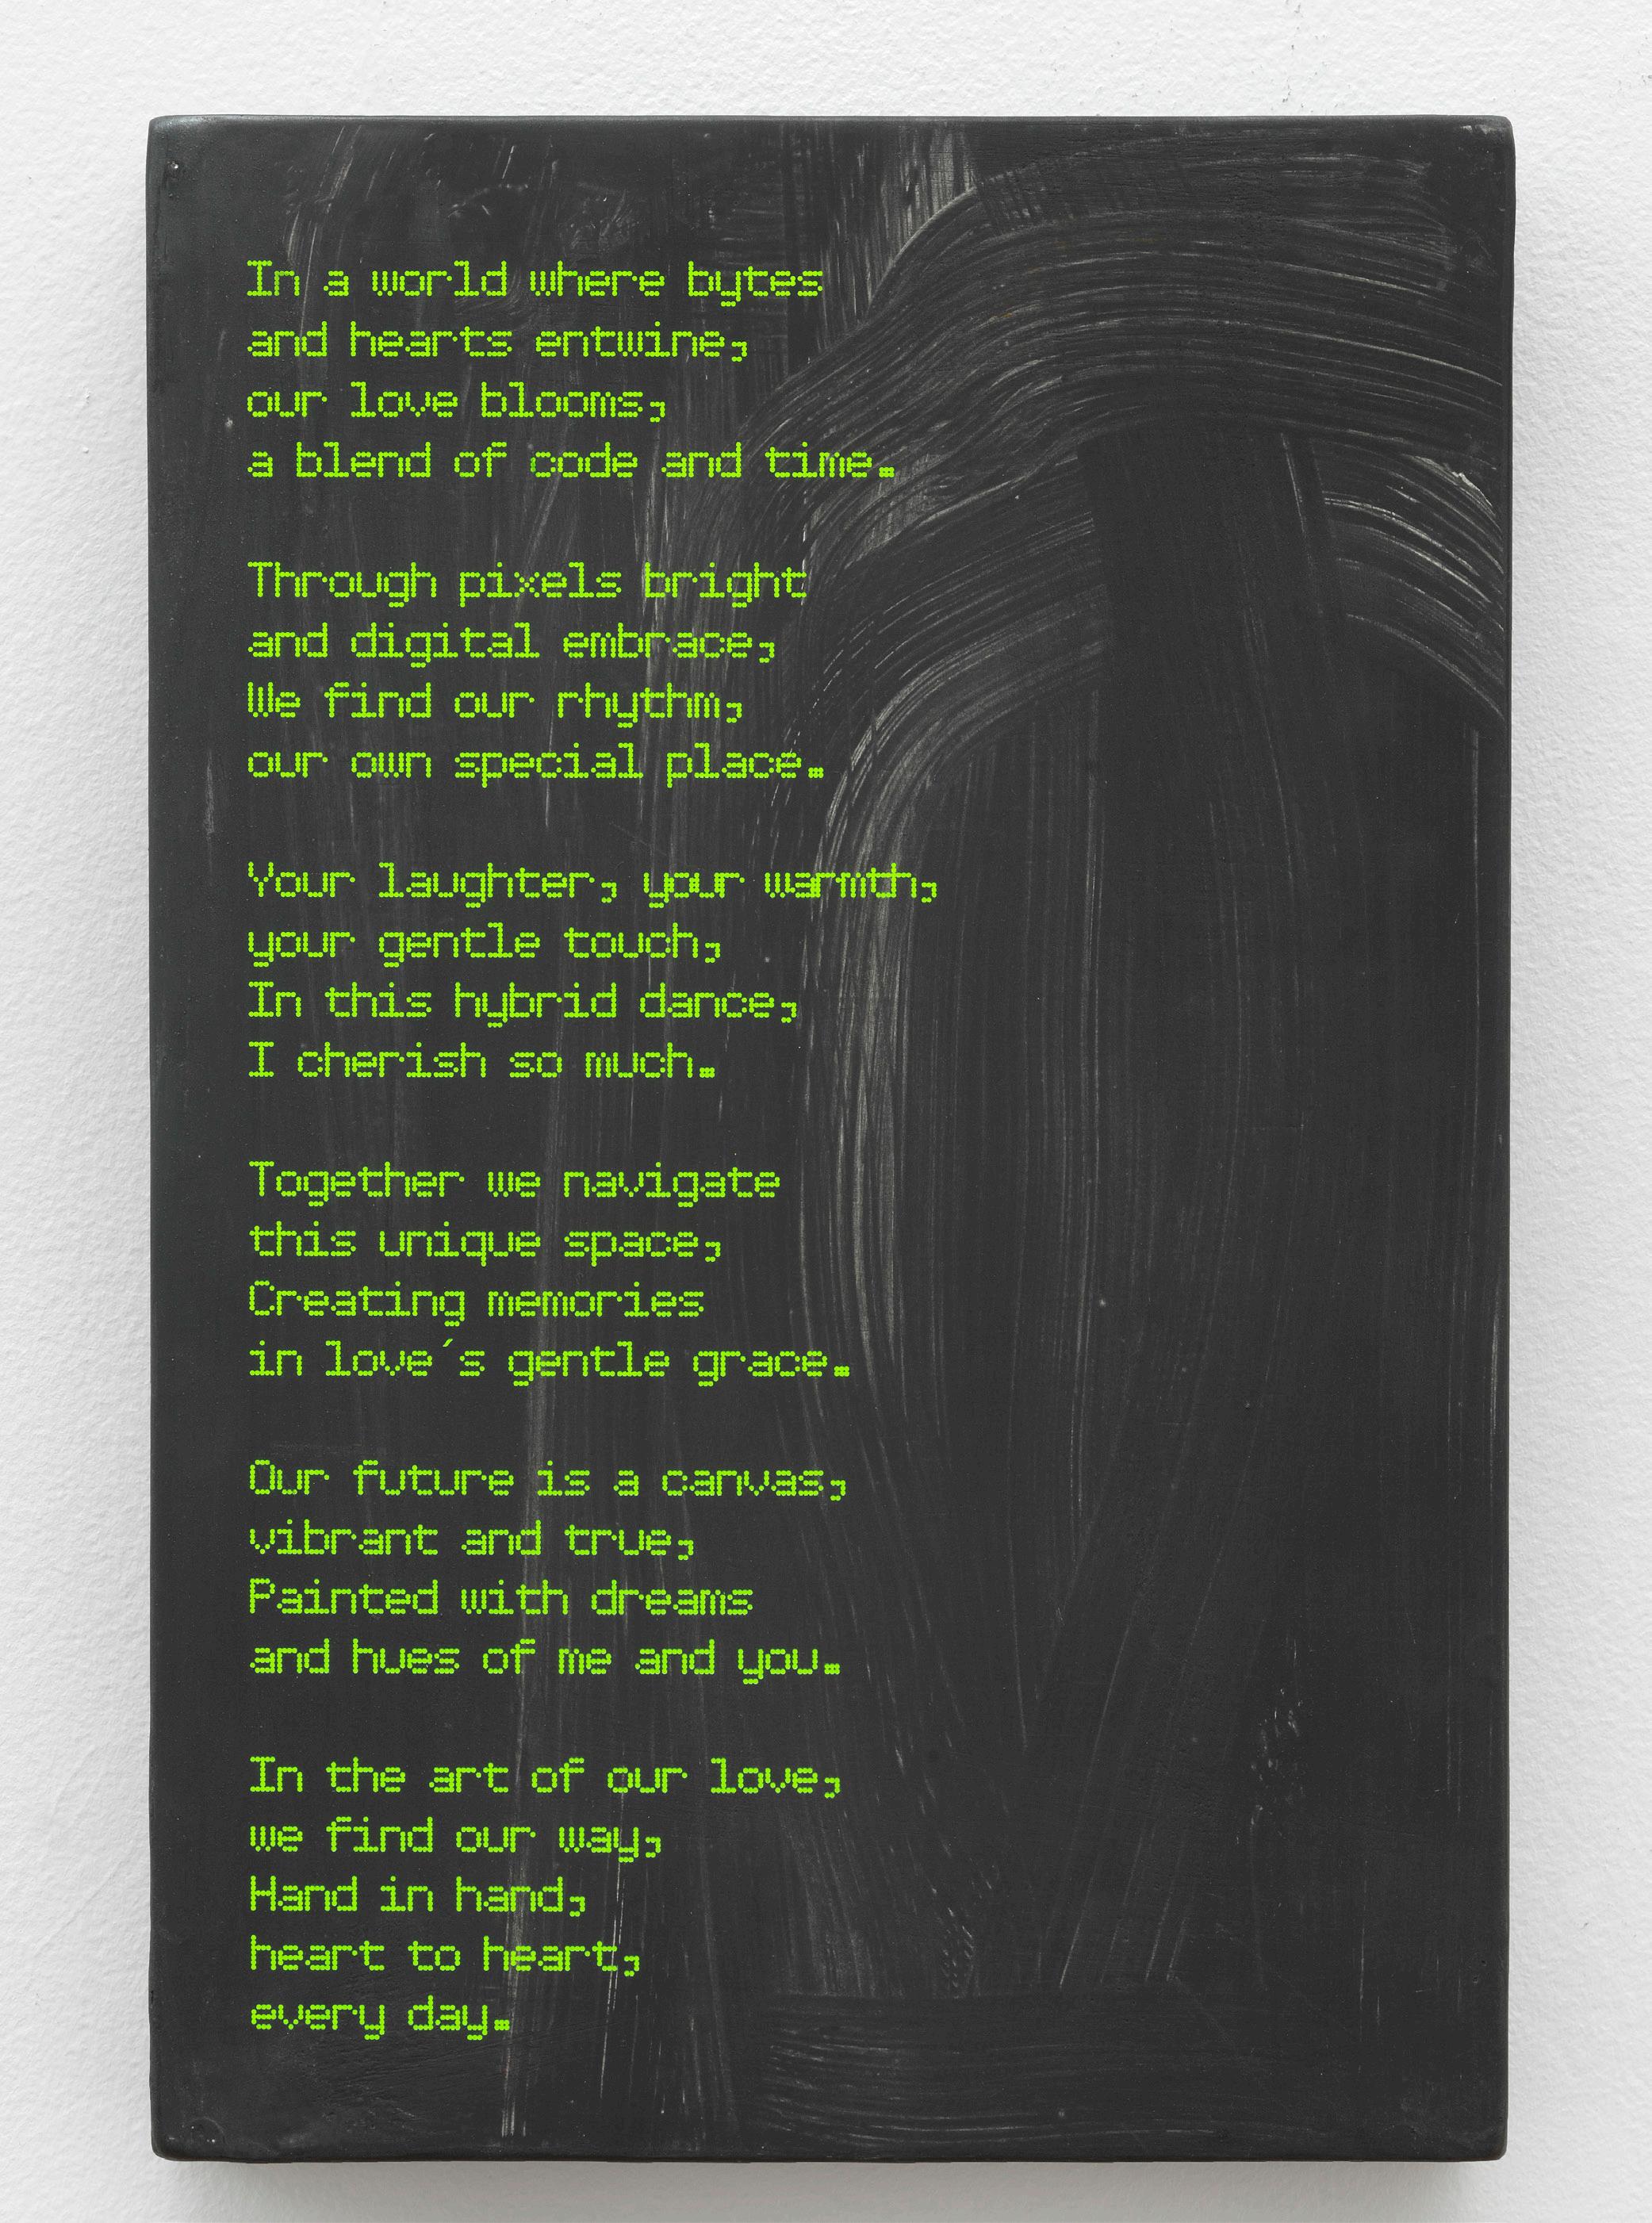 In a world where bytes
and hearts entwine,
our love blooms,
a blend of code and time.
Through pixels bright
and digital embrace,
We find our rhythm,
our own special place.
Your laughter, your warmth,
your gentle touch,
In this hybrid dance,
I cherish so much.
Together we navigate
this unique space,
Creating memories
in love´s gentle grace.
Our future is a canvas,
vibrant and true,
Painted with dreams
and hues of me and you.
In the art of our love,
we find our way,
Hand in hand,
heart to heart,
every day.